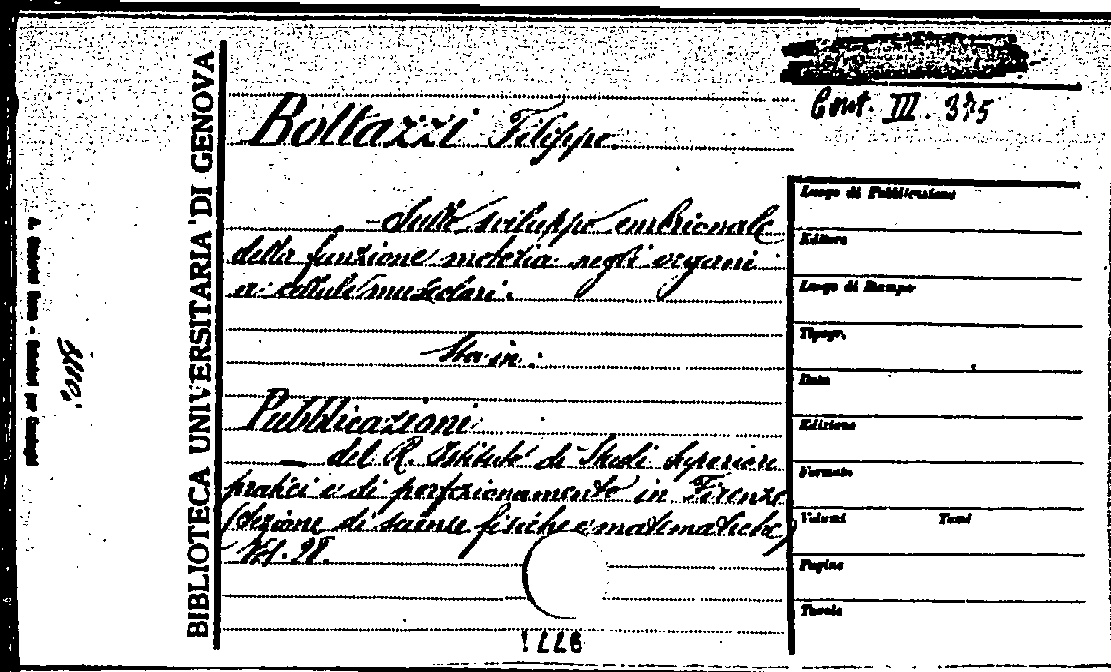 BIBLIOTECA UNIVERSITARIA DI GENOVA
Cont. III. 375
Bottazzi Filippo.
- Sullo sviluppo embrionale
della funzione motoria negli organi
a cellule muscolari.
Sta in:
Pubblicazioni
del R. Istituto di Studi Superiori
pratici e di perfezionamento in Firenze
(Sezione di scienze fisiche e matematiche)
Vol. 28.
Luogo di Pubblicazione
Editore
Luogo di Stampa
Tipogr.
Data
Edizione
Formato
Volumi Tomi
Pagine
Tavole